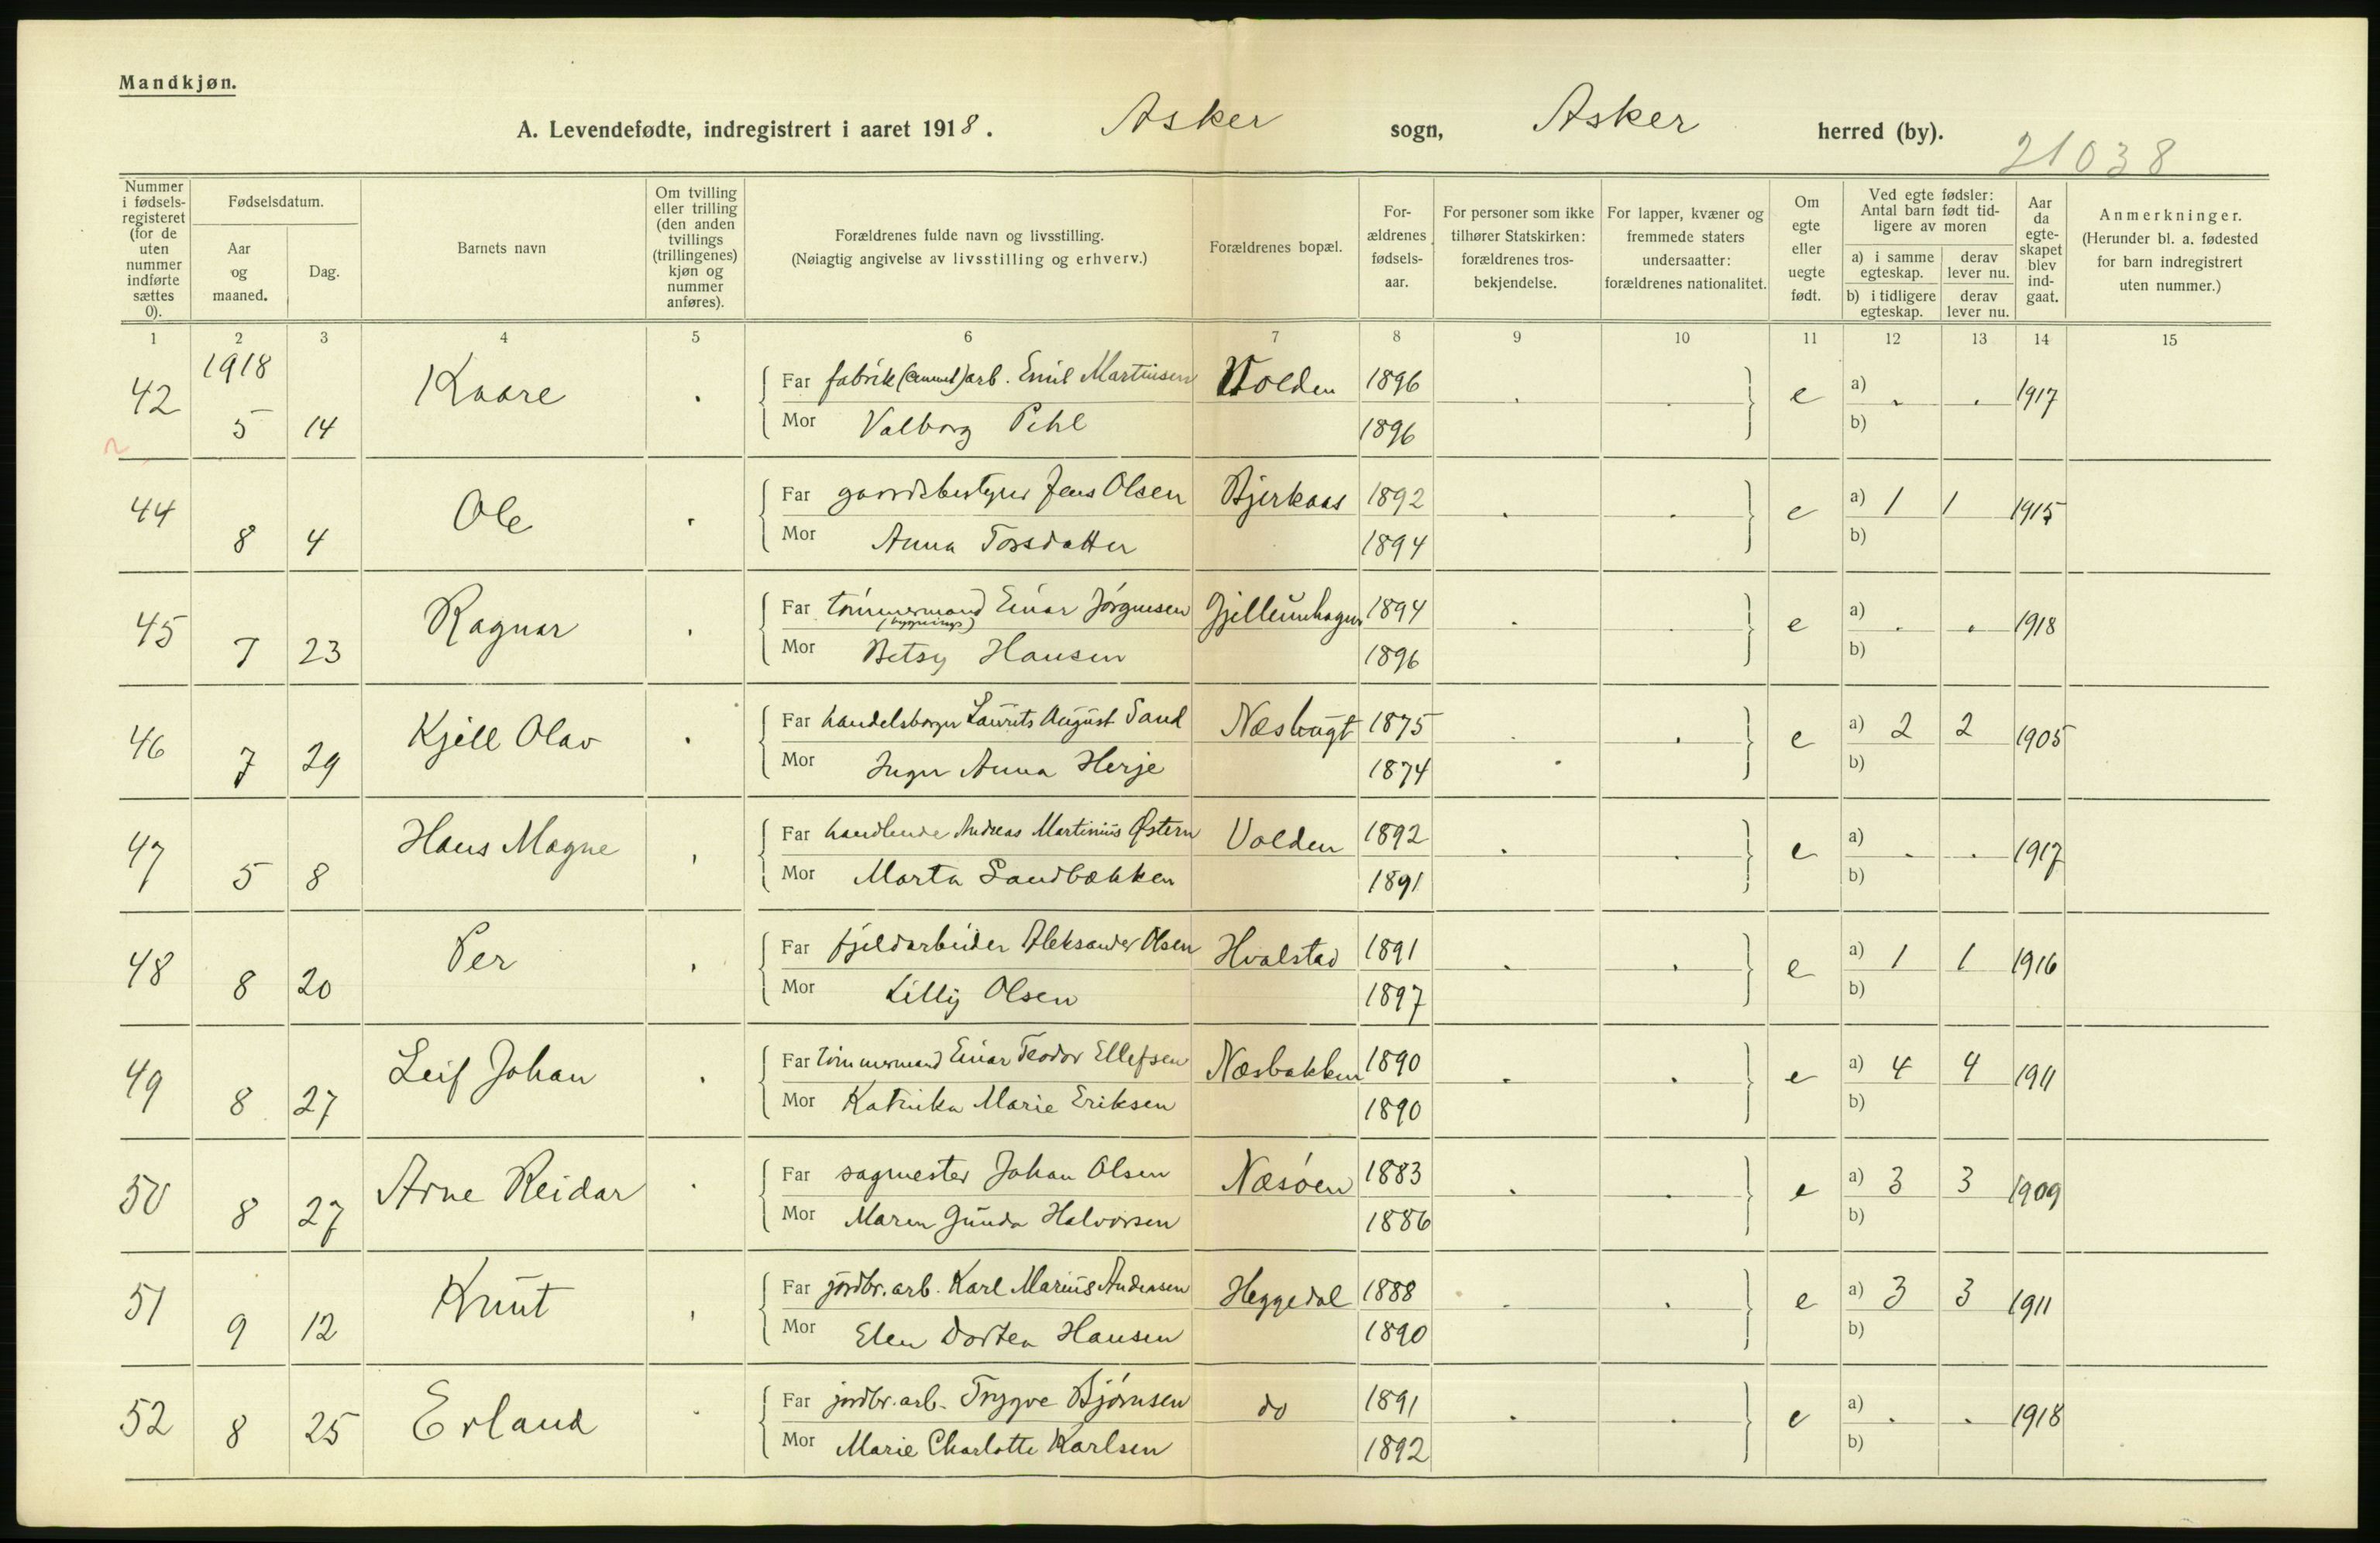 Mandkjøn.
A. Levendefødte, indregistrert i aaret 1918. Asker sogn, Asker herred (by).
21038
Nummer i fødsels-registeret (for de uten nummer indførte sættes 0).
Fødselsdatum.
Aar og maaned.
Dag.
Barnets navn
Om tvilling eller trilling (den anden tvillings (trillingenes) kjøn og nummer anføres).
Forældrenes fulde navn og livsstilling.
(Nøiagtig angivelse av livsstilling og erhverv.)
Forældrenes bopæl.
For-ældrenes fødsels-aar.
For personer som ikke tilhører Statskirken: forældrenes tros-bekjendelse.
For lapper, kvæner og fremmede staters undersaatter: forældrenes nationalitet.
Om egte eller uegte født.
Ved egte fødsler: Antal barn født tid-ligere av moren
a) i samme egteskap.
derav lever nu.
b) i tidligere egteskap.
derav lever nu.
Aar da egte-skapet blev ind-gaat.
Anmerkninger.
(Herunder bl. a. fødested for barn indregistrert uten nummer.)
1 2 3 4 5 6 7 8 9 10 11 12 13 14 15
1918
42 5 14 Kaare . Far fabrik(cement)arb. Emil Martinsen Volden 1896 . . e a) . . 1917
Mor Valborg Pihl 1896 b)
44 8 4 Ole . Far gaardsbestyrer Jens Olsen Bjerkaas 1892 . . e a) 1 1 1915
Mor Anna Torsdatter 1894 b)
45 7 23 Ragnar . Far tømmermand Einar Jørgensen Gjellumhagen 1894 . . e a) . . 1918
(bygnings)
Mor Betsy Hansen 1896 b)
46 7 29 Kjell Olav . Far handelsborger Laurits August Sand Næsbugt 1875 . . e a) 2 2 1905
Mor Inger Anna Herje 1874 b)
47 5 8 Hans Magne . Far handlende Andreas Martinius Østern Volden 1892 . . e a) . . 1917
Mor Marta Sandbækken 1891 b)
48 8 20 Per . Far fjeldarbeider Aleksander Olsen Hvalstad 1891 . . e a) 1 1 1916
Mor Lilly Olsen 1897 b)
49 8 27 Leif Johan . Far tømmermand Einar Teodor Ellefsen Næsbakken 1890 . . e a) 4 4 1911
Mor Katinka Marie Eriksen 1890 b)
50 8 27 Arne Reidar . Far sagmester Johan Olsen Næsøen 1883 . . e a) 3 3 1909
Mor Maren Gunda Halvorsen 1886 b)
51 9 12 Knut . Far jordbr. arb. Karl Marius Andreasen Heggedal 1888 . . e a) 3 3 1911
Mor Elen Dortea Hansen 1890 b)
52 8 25 Erland . Far jordbr. arb. Trygve Bjørnsen do 1891 . . e a) . . 1918
Mor Marie Charlotte Karlsen 1892 b)